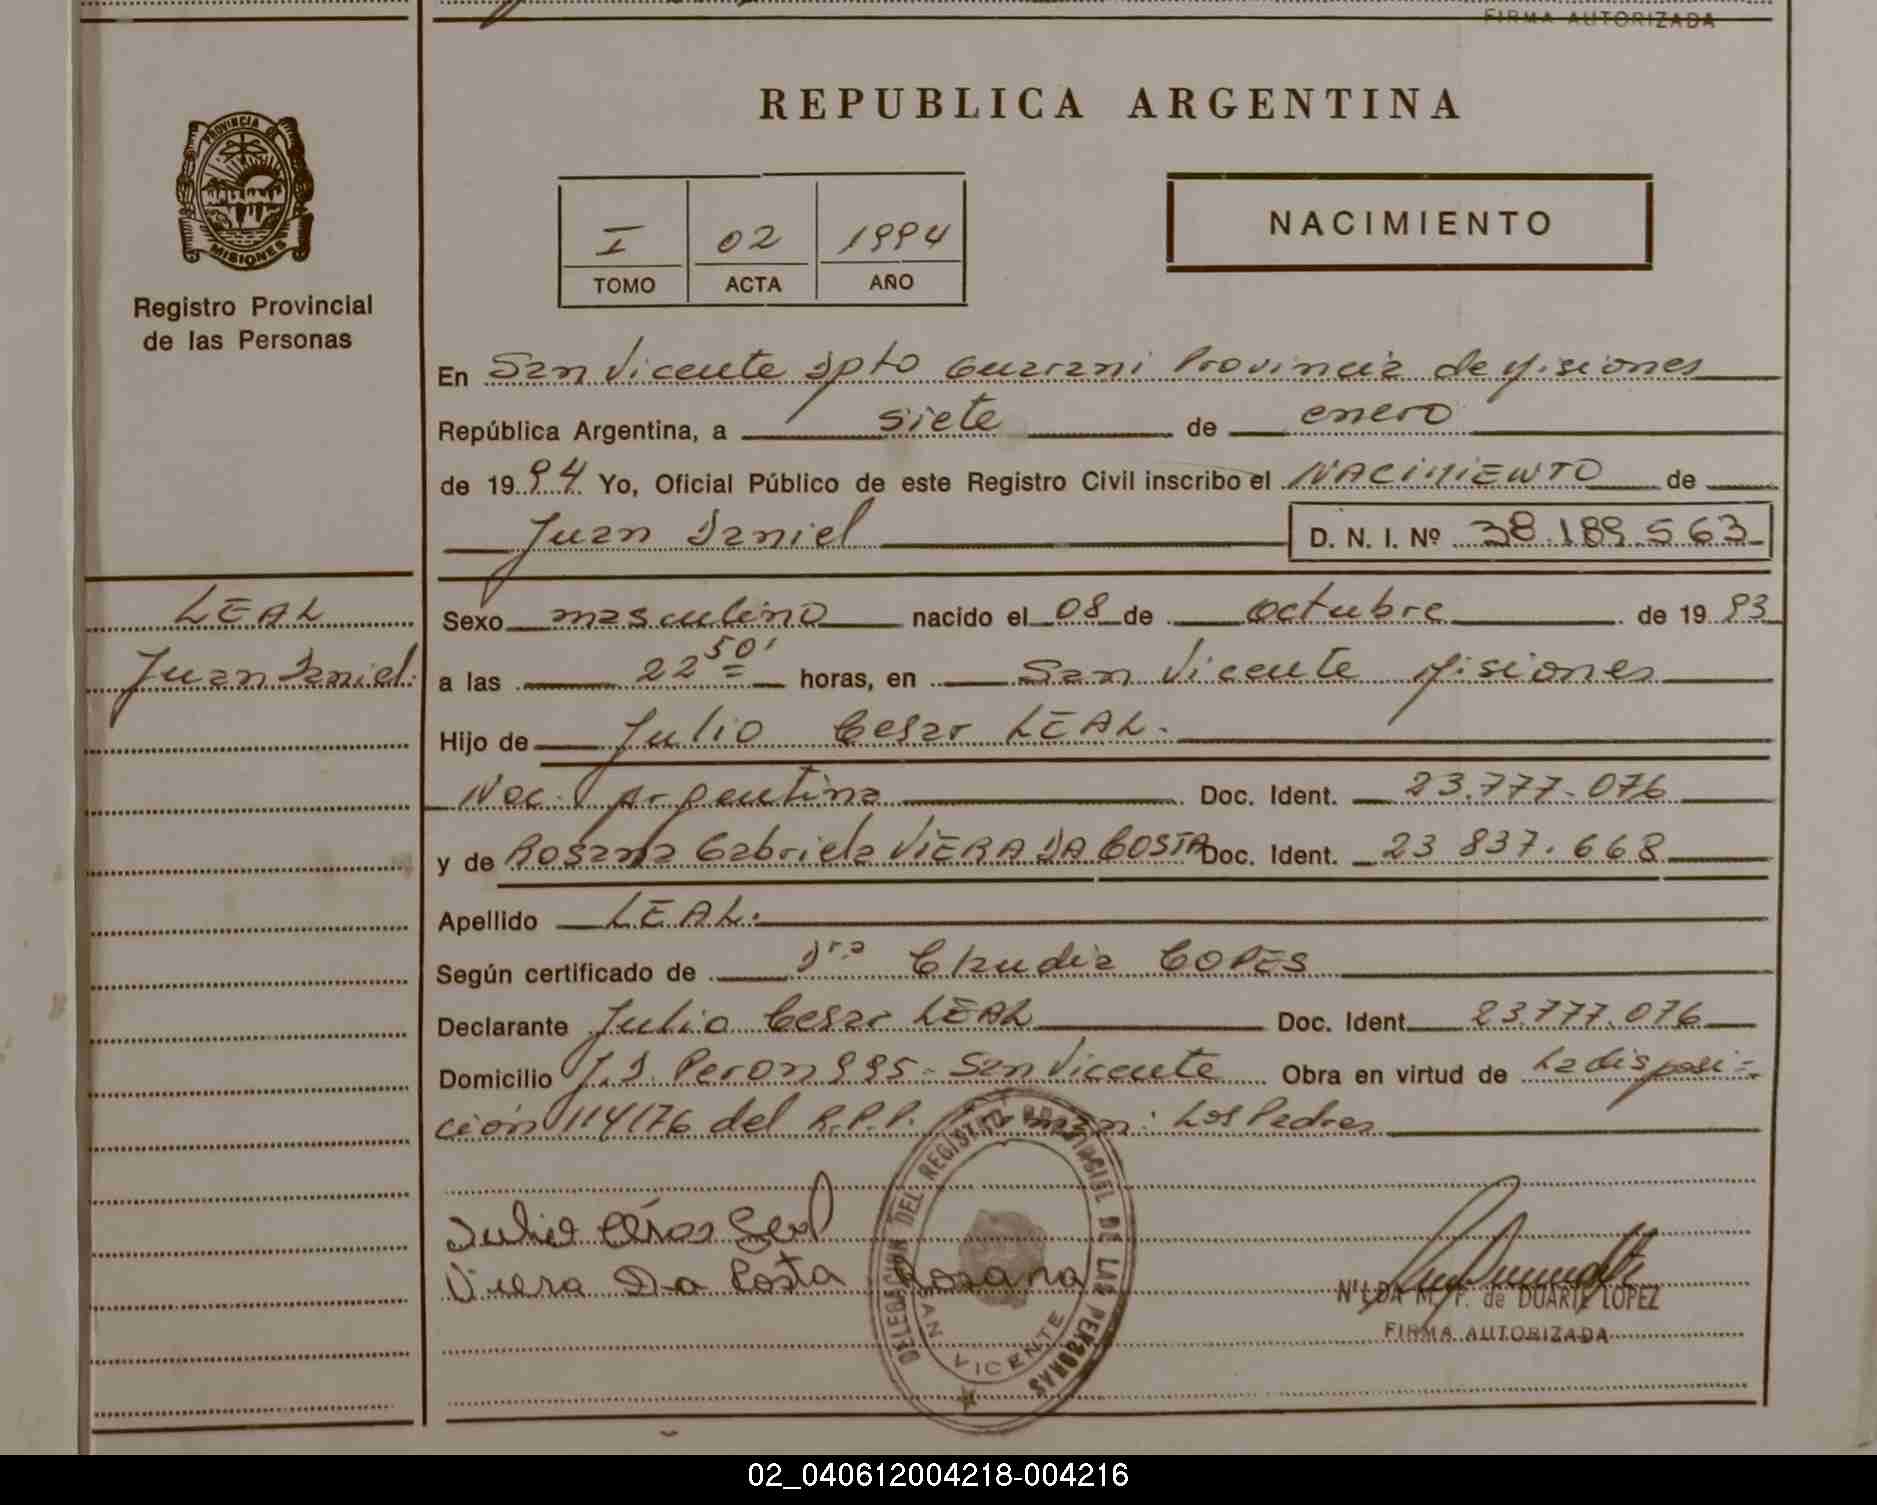 FIRMA AUTORIZADA
REPUBLICA ARGENTINA
PROVINCIA
MISIONES
Registro Provincial
de las Personas
I 02 1994
TOMO ACTA AÑO
NACIMIENTO
En San Vicente Dpto Guarani Provincia de Misiones
República Argentina, a siete de enero
de 1994 Yo, Oficial Público de este Registro Civil inscribo el NACIMIENTO de
Juan Daniel D. N. I. Nº 38.189.563
LEAL
Juan Daniel.
Sexo masculino nacido el 08 de octubre de 1993
a las 22 50' horas, en San Vicente Misiones
Hijo de Julio Cesar LEAL.
Nac. Argentina Doc. Ident. 23.777.076
y de Rosana Gabriela VIERA DA COSTA Doc. Ident. 23 837.668
Apellido LEAL.
Según certificado de Dra Claudia COPES
Declarante Julio Cesar LEAL Doc. Ident. 23.777.076
Domicilio J.D. Peron 995 - San Vicente Obra en virtud de La disposi=
ción 114/76 del R.P.P. man: Los Padres
Julio César Leal
Viera Da Costa Rosana
DELEGACION DEL REGISTRO PROVINCIAL DE LAS PERSONAS
SAN VICENTE
NILDA M. F. de DUARTE LOPEZ
FIRMA AUTORIZADA
02_040612004218-004216